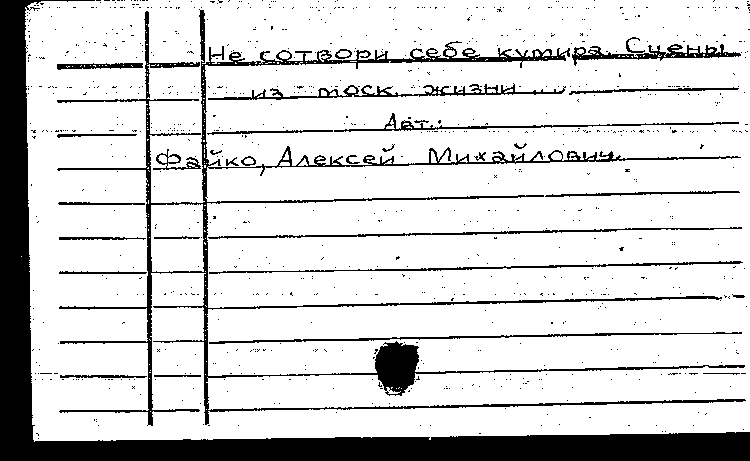 Не сотвори себе кумира. Сцены
из моск. жизни ...
Авт.:
Файко, Алексей Михайлович.